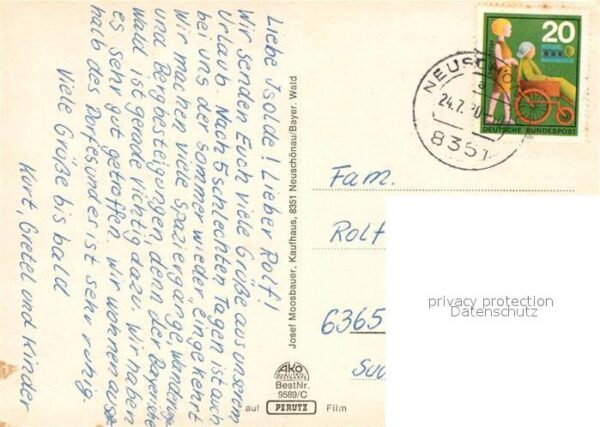 Liebe Isolde! Lieber Rolf!
Wir senden Euch viele Grüße aus unserem
Urlaub. Nach 5 schlechten Tagen ist auch
bei uns der Sommer wieder „eingekehrt
Wir machen viele Spaziergänge, Wanderungen
und Bergbsteigungen, denn der Bayerische
Wald ist gerade richtig dazu. Wir haben
es sehr gut getroffen. Wir wohnen außer-
halb des Dorfes und es ist sehr ruhig.
Viele Grüße bis bald
Kurt, Gretel und Kinder
Josef Moosbauer, Kaufhaus, 8351 Neuschönau/Bayer. Wald
AKO
BestNr.
9589/C
auf PERUTZ Film
NEUSCHÖ
24.7.
8351
20
DEUTSCHE BUNDESPOST
Fam.
Rolf
6365
privacy protection
Datenschutz